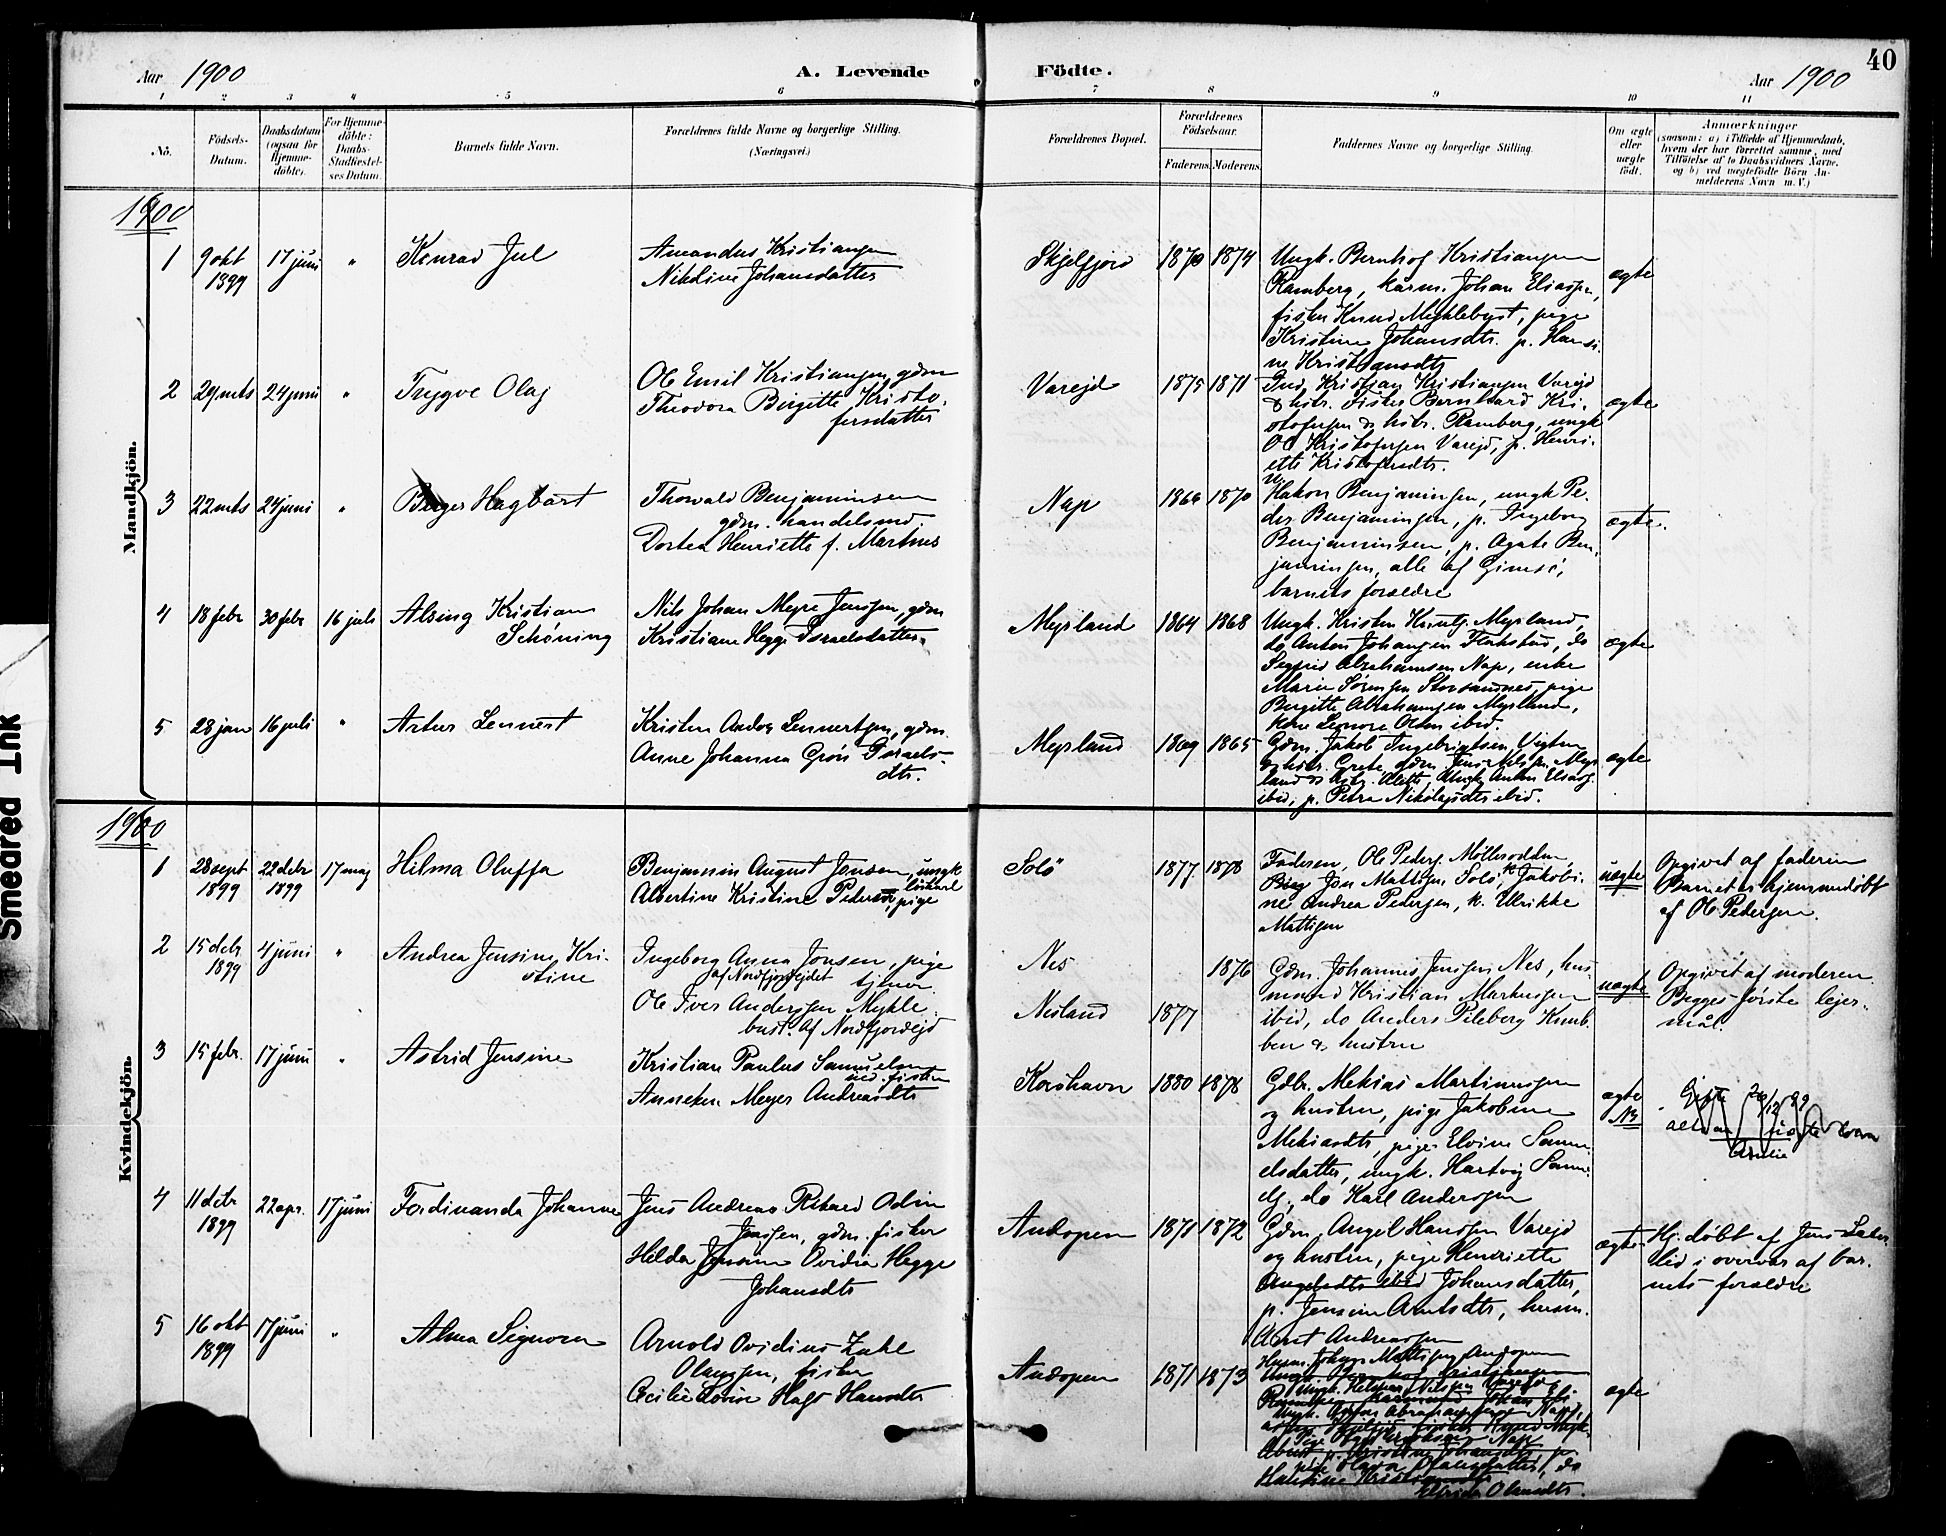 40
Aar 1900
A. Levende Födte.
Aar 1900
1 2 3 4 5 6 7 8 9 10 11
No.
Födsels-Datum.
Daabsdatum (ogsaa for Hjemme-döbte).
For Hjemme-döbte: Daabs-Stadfæstel-ses Datum.
Barnets fulde Navn.
Forældrenes fulde Navne og borgerlige Stilling.
(Næringsvei.)
Forældrenes Bopæl.
Forældrenes Födselsaar.
Faderens. Moderens.
Faddernes Navne og borgerlige Stilling.
Om ægte eller uægte födt.
Anmærkninger
(saasom: a) i Tilfælde af Hjemmedaab,
hvem der har forrettet samme, med
Tilföielse af to Daabsvidners Navne,
og b) ved uægtefödte Börn An-
melderens Navn m. V.)
Mandkjön.
1900
1 9 okt 1899 17 juni " Konrad Jul
Amandus Kristiansen
Nikoline Johansdatter
Skjelfjord 1870 1874
Ungk. Bernhof Kristiansen
Ramberg, kårm. Johan Eliassen,
fisker Knud Myklebust, pige
Kristine Johansdtr. p. Hansi-
ne Kristiansdtr
ægte
2 29 mts 24 juni " Trygve Olaf
Ole Emil Kristiansen, gdm
Theodora Birgitte Kristo-
fersdatter
Varejd 1875 1871
Ind. Kristian Kristiansen Varejd
& hstr. Fisker Bernhard Kri-
stofersen & hstr. Ramberg, ungk
Ole Kristofersen Varejd, p. Henri-
ette Kristofersdtr.
ægte
3 22 mts 24 juni " Birger Hagbart
Thorvald Benjaminsen
gdm. handelsmd.
Dortea Henriette f. Martens
Nap 1866 1870
Hakon Benjaminsen, ungk Pe-
der Benjaminsen, p. Ingeborg
Benjaminsen, p. Agate Ben-
jaminsen, alle af Gimsö,
barnets forældre
ægte.
4 18 febr 30 febr 16 juli Alsing Kristian
Schöning
Nils Johan Meyer Jenssen, gdm
Kristiane Hegge Israelsdatter
Myrland 1864 1868
Ungk. Kristen Kentz. Myrland,
do Anton Johansen Flakstad, do
Segfrid Abrahamsen Nap, enke
Marie Sörensen Storsandnes, pige
Birgitte Abrahamsen Myrland,
kone Leonore Olsen ibid.
ægte
5 28 jan 16 juli " Artur Lennert
Kristen Andor Lennertsen, gdm.
Anne Johanna Grön Israels-
dtr.
Myrland 1869 1865
Gdm. Jakob Ingebrigtsen Vigten
& hstr. Grete, gdm. Jens Nilssen Myr-
land & hstr. Alette, Ungk Anton Eliass.
ibid, p. Petra Nikolajsdtr ibid.
ægte
Kvindekjön.
1900
1 28 sept 1899 22 debr 1899 17 maj Hilma Oluffa
Benjamin August Jonsen, ungk löskarl
Albertine Kristine Pedersen, pige
Solö 1877 1878
Faderen, Ole Peders. Mölleroddен,
Jon Matisen Solö, k. Jakobi-
ne Andrea Pedersen, k. Ulrikke
Mattisen
uægte
Opgivet af faderen
Barnet er hjemmedöbt
af Ole Pedersen.
2 15 debr 1899 4 juni " Andrea Jensine Kri-
stine
Ingeborg Anna Jonsen, pige
af Nordfjordejdet tjener
Ole Iver Anderssen Mykle-
bust. Af Nordfjordejd
Nes 1876
Nesland 1877
Gdm. Johannes Jenssen Nes, hus-
mand Kristian Markussen
ibid, do Anders Pileberg Kumb-
ben & hustru
uægte
Opgivet af moderen
Begges förste lejer-
mål.
3 15 febr. 17 juni " Astrid Jensine
Kristian Paulus Samuelsen
ind. fisker
Anneken Meyer Andreasdtr
Korshavn 1880 1878
Gdbr. Mekias Martinussen
og hustru, pige Jakobine
Mekiasdtr, pige Elvine Samu-
elsdatter, ungk. Hartvig Samu-
els., do Karl Anderssen
ægte NB
Gifte 29/12 99
4 11 debr 1899 22 apr. 17 juni Ferdinanda Johanne
Jens Andreas Rikard Odin
Jenssen, gdm. fisker
Helda Jensine Ovidia Hegge
Johansdtr
Andopen 1871 1872
Gdm. Angel Hanssen Varejd
og hustru, pige Henriette
Angelsdtr ibid Johansdatter,
p. Jensine Arntsdtr, husm.
Arnt Andreassen
ægte
Hj. döbt af Jens
i overvær af bar-
nets forældre
5 16 okt 1899 17 juni " Alma Signora
Arnold Ovidius Zahl
Olaussen, fisker
Cecilie Lovise Hags Hansdtr
Andopen 1871 1873
Husm. Johans Mattisen Andopen
Ungk. Bernhof Kristiansen
Ungk. Nilssen Varejd,
Ungk. Abrahamsen Nap,
Nap
pige Olausdatter, do
Elfrida Olausdtr.
ægte
Smeared Ink